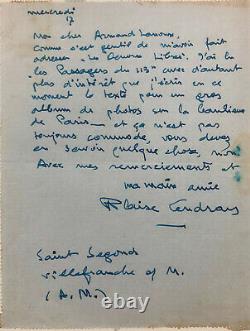 mercredi
17
Mon cher Armand Lanoux,
comme c'est gentil de m'avoir fait
adresser "Les Œuvres Libres". J'ai lu
les Passages du 113e avec d'autant
plus d'intérêt que j'écris en ce
moment le texte pour un gros
album de photos sur la banlieue
de Paris — et ça n'est pas
toujours commode, vous devez
en savoir quelque chose, non?
Avec mes remerciements et
ma main amie
Blaise Cendrars
Saint Segond
Villefranche s/ M.
(A. M.)